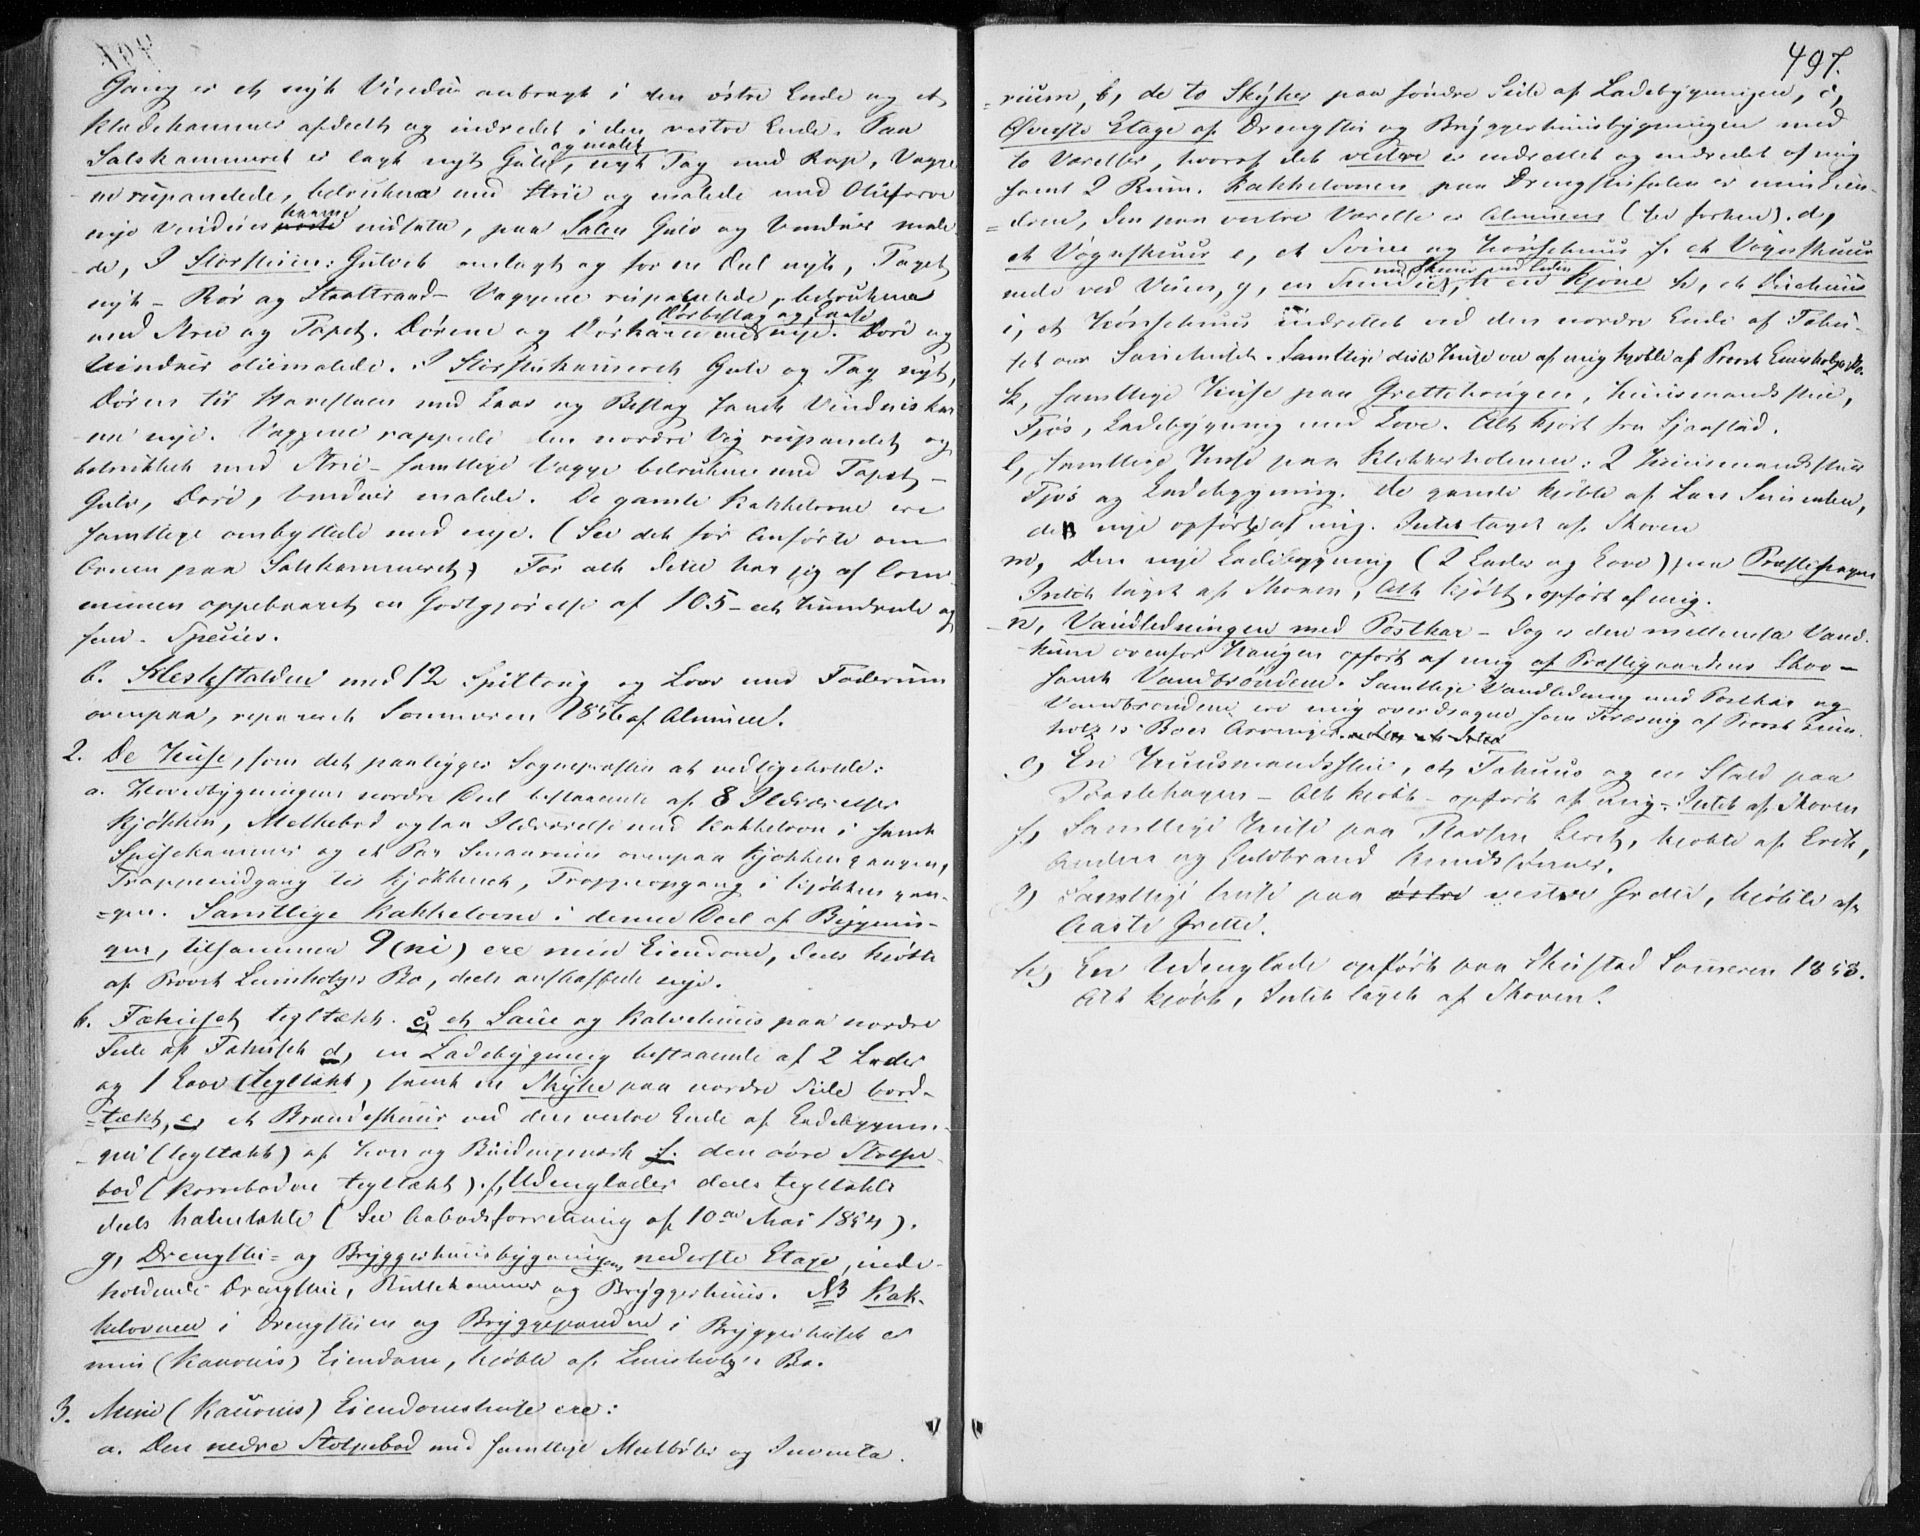 Gang er et nyt Vindue anbragt i den østre Ende og et
Klædekammer afdeelt og indredet i den vestre Ende. Paa
og malet
Salskammeret er lagt nyt Gulv, nyt Tag med Rap, Vægge
ne rupanelede, betrukne med Strie og malede med Oliefarve
karme
nye Vinduer indsatte, paa Salen Gulv og Vinduer male
de, I Storstuen: Gulvet omlagt og for en Deel nyt, Taget
nyt - Rør og Staaltraad - Væggene rupanelede, betrukne
Dørbeslag og Laase
med Strie og Tapet. Dørene og Dørkarmene nye. Døre og
Vinduer oliemalede. I Storstukammeret Gulv og Tag nyt,
Døren til Havestuen med Laas og Beslag samt Vindueskar
ne nye. Væggene rappede den nordre Væg rupanelet og
betrukket med Strie - samtlige Vægge betrukne med Tapet -
Gulv, Døre, Vinduer malede. De gamle Kakkelovne ere
samtlige ombyttede med nye. (See det før Anførte om
Ovnen paa Salskammeret) For alt dette har jeg af Com-
munen oppebaaret en Godtgjørelse af 105 - et hundrede og
fem - Species.
b. Hestestalden med 12 Spiltoug og Lover med Foderum
ovenpaa, reparert Sommeren 1856 af Almuen.
2. De Huse, som det paaligger Sognepræsten at vedligeholde:
a. Hovedbygningens nordre Deel bestaaende af 8 Ildværelser
Kjøkken, Melkebod ogsaa Ildværelse med Kakkelovn i samt
Spisekammer og et Par Smaarum ovenpaa Kjøkkengangen,
Trappenedgang til Kjøkkenet, Trappeopgang i Kjøkkengan-
gen. Samtlige Kakkelovne i denne Deel af Bygnin-
gen, tilsammen 9 (ni) ere min Eiendom, deels kjøbte
af Provst Lumholzes Bo, deels anskaffede nye.
b. Fæhuset tegltækt. c, et Saue og Kalvehuus paa nordre
Side af Fæhuset d, en Ladebygning bestaaende af 2 Lader
og 1 Love (tegltækt) samt en Skyke paa nordre Side bord-
tækt, e, et Brændeskuur ved den vestre Ende af Ladebygnin-
gen (tegltækt) af Hon og Bindingsværk f. den øvre Stolpe-
bod (Kornboden tegltækt). f, Udenglader deels tegltækte
deels halmtækte (See Aabodsforretning af 10de Mai 1854).
g, Drengstu- og Bryggerhuusbygningens nederste Etage, inde-
holdende Drengstue, Rullekammer og Bryggerhuus. NB Kak-
kelovnen i Drengstuen og Bryggepanden i Bryggerhuset er
min (Kaurins) Eiendom, kjøbte af Lumholzes Bo.
3. Mine (Kaurins) Eiendomshuse ere:
a. Den nedre Stolpebod med samtlige Meelbøler og Inventa-
497.
rium, b, de to Skyker paa søndre Side af Ladebygningen, c,
Øverste Etage af Drengstu og Bryggerhuusbygningen med
to Værelser, hvoraf det vestre er indrettet og indredet af mig
samt 2 Rum. Kakkelovnen paa Drengstusalen er min Eien-
dom, den paa vestre Værelse er Almuens (See forhen). d,
et Vognskuur e, et Sviin og Hønsehuus f. et Vognskuur
med Skuur ved Siden
nede ved Veien, g, en Smedie, h en Kjone h, et Duehuus
i, et Hønsehuus indrettet ved den nordre Ende af Fæhu-
set over Sauehuset. Samtlige disse Huse ere af mig kjøbte af Provst Lumholzes Bo.
k, samtlige Huse paa Grettehaugen, Huusmandsstue,
Fjøs, Ladebygning med Love. Alt kjørt fra Sjaastad.
l, samtlige Huse paa Klekkerholmen: 2 Huusmandsstuer
Fjøs og Ladebygning. De gamle kjøbte af Lars Svensken,
den nye opført af mig. Intet taget af Skoven
m, Den nye Ladebygning (2 Lader og Love) paa Præstehagen
Intet taget af Skoven, alt kjøbt, opført af mig.
n, Vandledningen med Postkar - dog er den mellemste Vand-
kum ovenfor Haugen opført af mig af Præstegaardens Skov -
samt Vandbrøndene. Samtlige Vandledning med Postkar og
Vandbrøndene ere mig overdragne som Foræring af Provst Lum-
holzes Boes Arvinger.
o) En Huusmandsstue, et Fæhuus og en Stald paa
Præstehagen - Alt kjøbt - opført af mig - Intet af Skoven
p, Samtlige Huse paa Pladsen Leret, kjøbte af Erik,
Anders og Guldbrand Knudssønner.
q) Samtlige Huse paa østre vestre Grette, kjøbte af
Aaste Grette.
r, En Udenglade opført paa Skustad Sommeren 1858.
Alt kjøbt, Intet taget af Skoven.